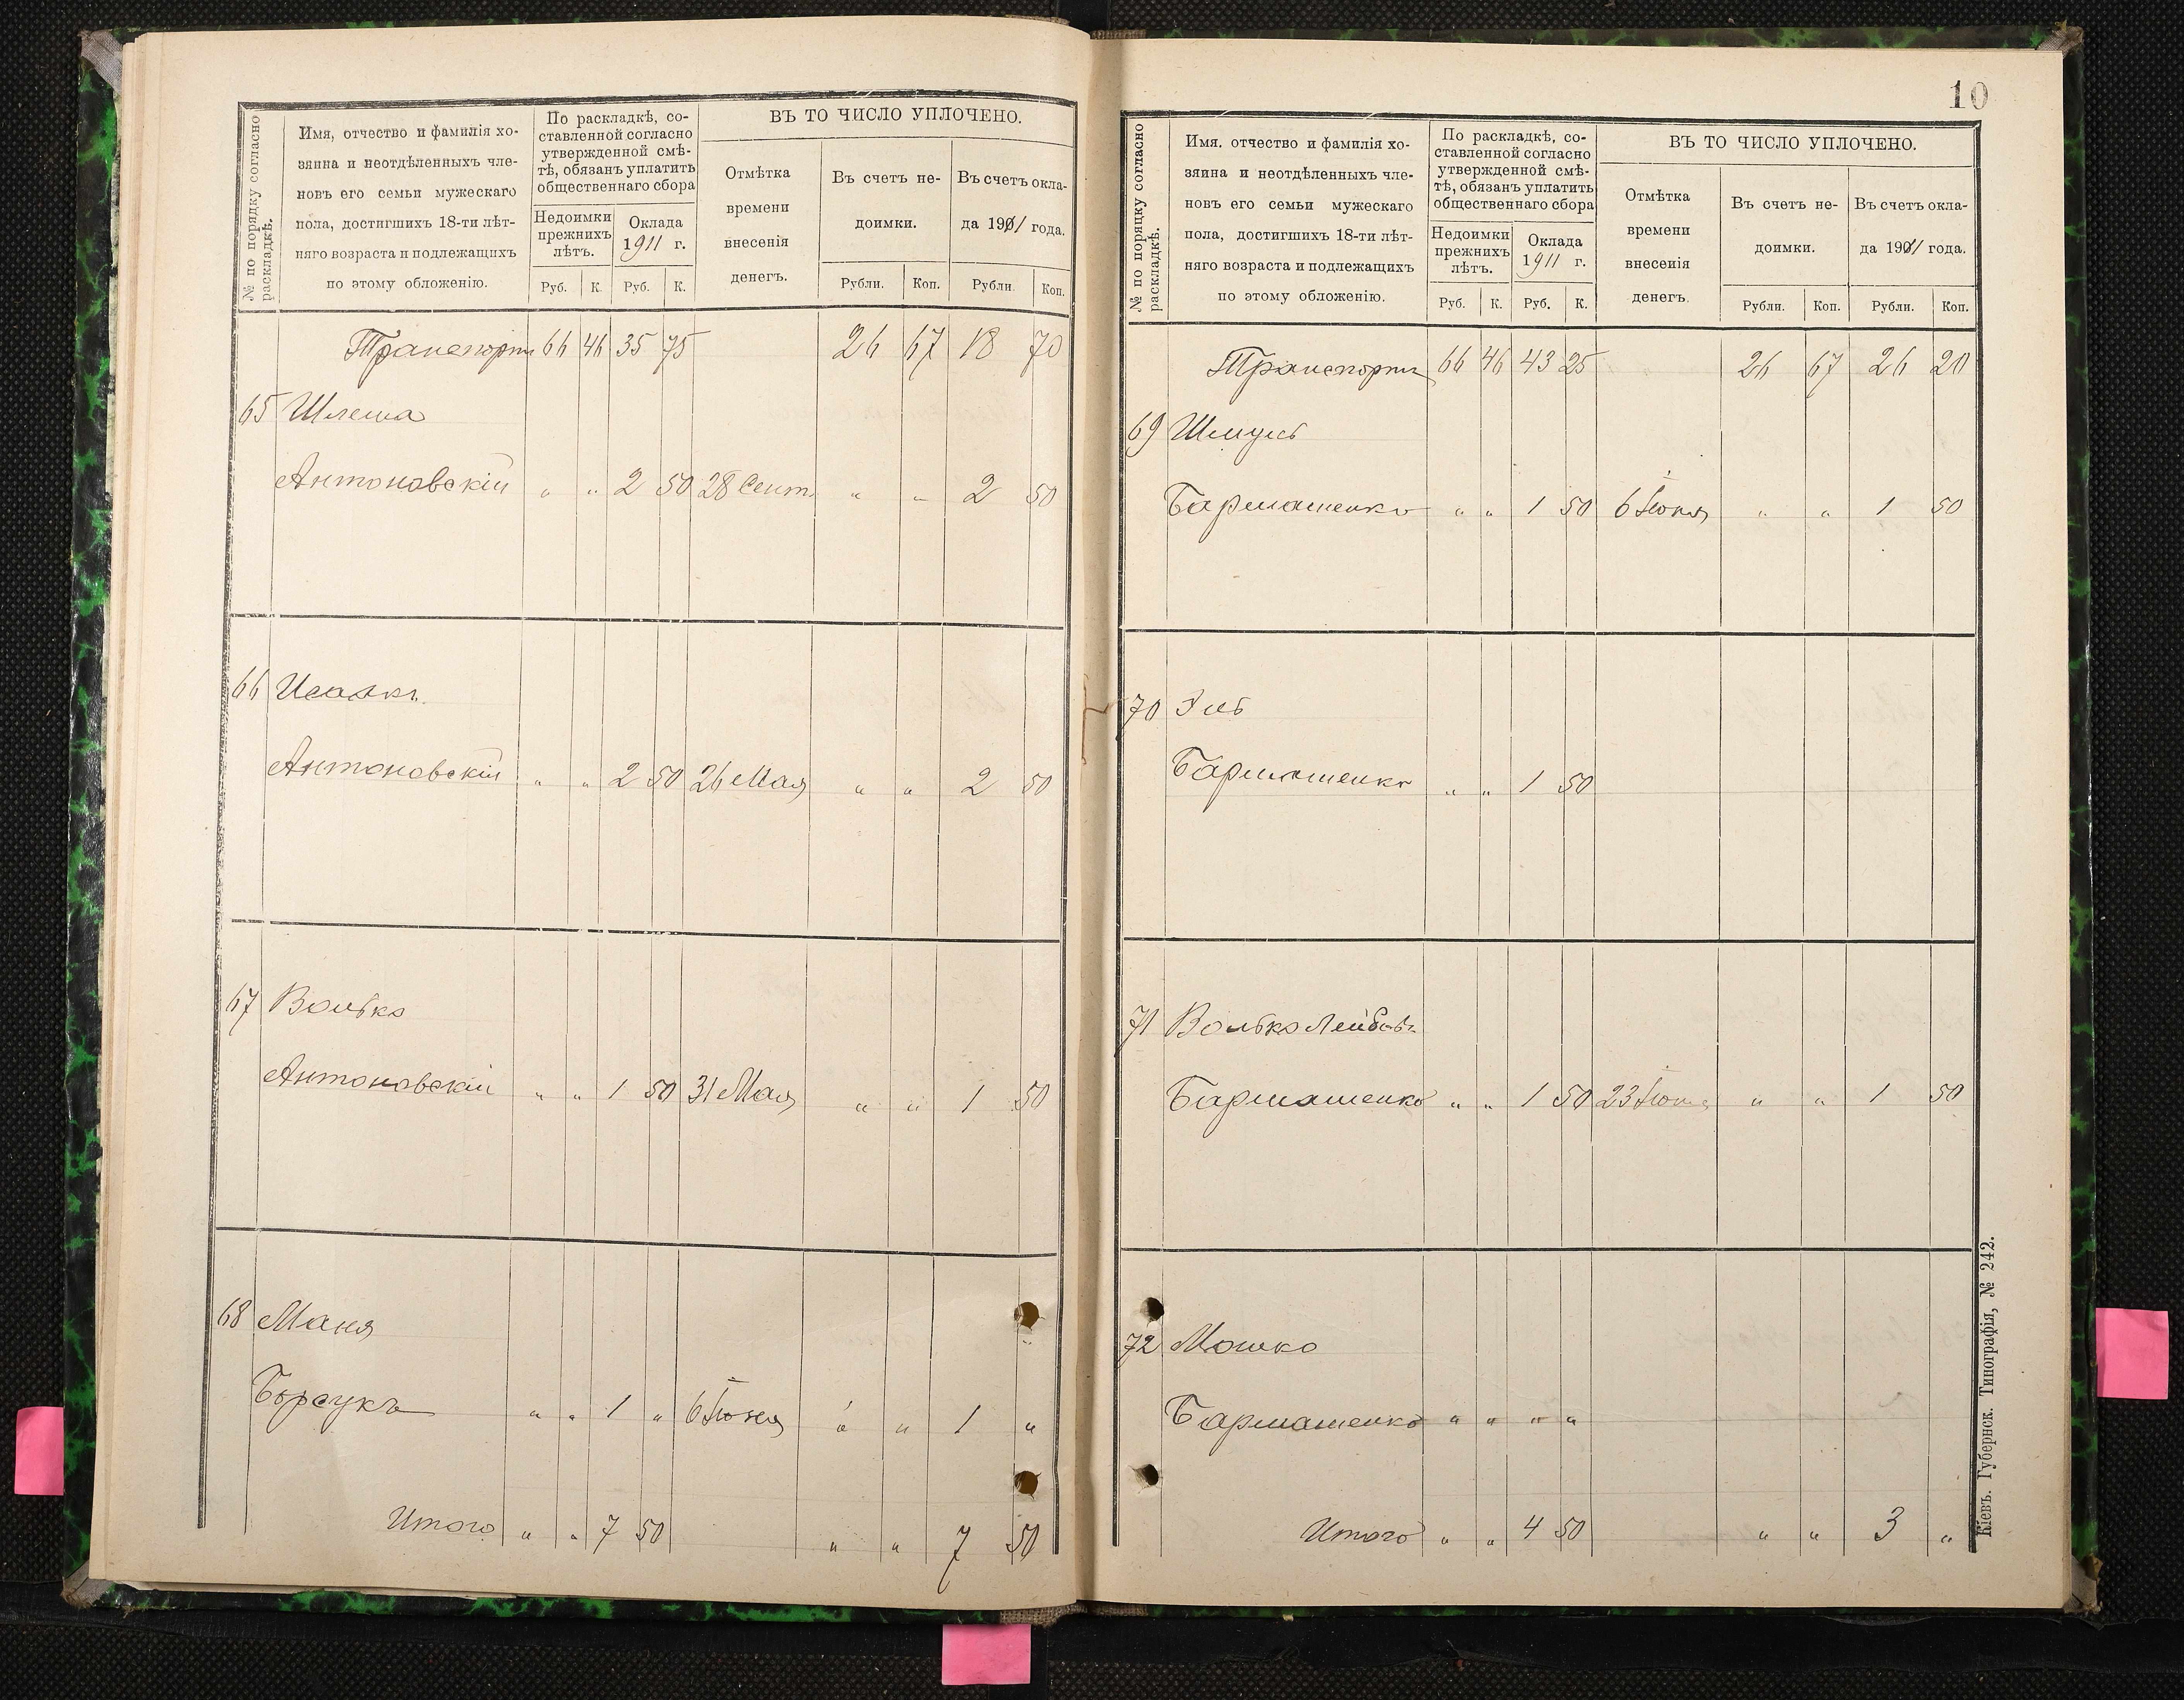 № по порядку согласно
раскладкѣ.
Имя, отчество и фамилія хо-
зяина и неотдѣленныхъ чле-
новъ его семьи мужескаго
пола, достигшихъ 18-ти лѣт-
няго возраста и подлежащихъ
по этому обложенію.
По раскладкѣ, со-
ставленной согласно
утвержденной смѣ-
тѣ, обязанъ уплатить
общественнаго сбора
Недоимки
прежнихъ
лѣтъ.
Оклада
1911 г.
ВЪ ТО ЧИСЛО УПЛОЧЕНО.
Отмѣтка
времени
внесенія
денегъ.
Въ счетъ не-
доимки.
Въ счетъ окла-
да 1911 года.
Руб. К. Руб. К. Рубли. Коп. Рубли. Коп.
Транспортъ 66 46 35 75 26 67 18 70
65 Шлема
Антоновскій " " 2 50 28 Сент. " " 2 50
66 Исаакъ
Антоновскій " " 2 50 26 Мая " " 2 50
67 Волько
Антоновскій " " 1 50 31 Мая " " 1 50
68 Маня
Борсукъ " " 1 " 6 Іюня " " 1 "
Итого " " 7 50 " " 7 50
10
№ по порядку согласно
раскладкѣ.
Имя. отчество и фамилія хо-
зяина и неотдѣленныхъ чле-
новъ его семьи мужескаго
пола, достигшихъ 18-ти лѣт-
няго возраста и подлежащихъ
по этому обложенію.
По раскладкѣ, со-
ставленной согласно
утвержденной смѣ-
тѣ, обязанъ уплатить
общественнаго сбора
Недоимки
прежнихъ
лѣтъ.
Оклада
1911 г.
ВЪ ТО ЧИСЛО УПЛОЧЕНО.
Отмѣтка
времени
внесенія
денегъ.
Въ счетъ не-
доимки.
Въ счетъ окла-
да 1911 года.
Руб. К. Руб. К. Рубли. Коп. Рубли. Коп.
Транспортъ 66 46 43 25 26 67 26 20
69 Шмуль
Бармашенко " " 1 50 6 Іюня " " 1 50
70 Эль
Бармашенко " " 1 50
71 Волько Лейбовъ
Бармашенко " " 1 50 23 Іюня " " 1 50
72 Мошко
Бармашенко " " " "
Итого " " 4 50 " " 3 "
Кіевъ. Губернск. Типографія, № 242.